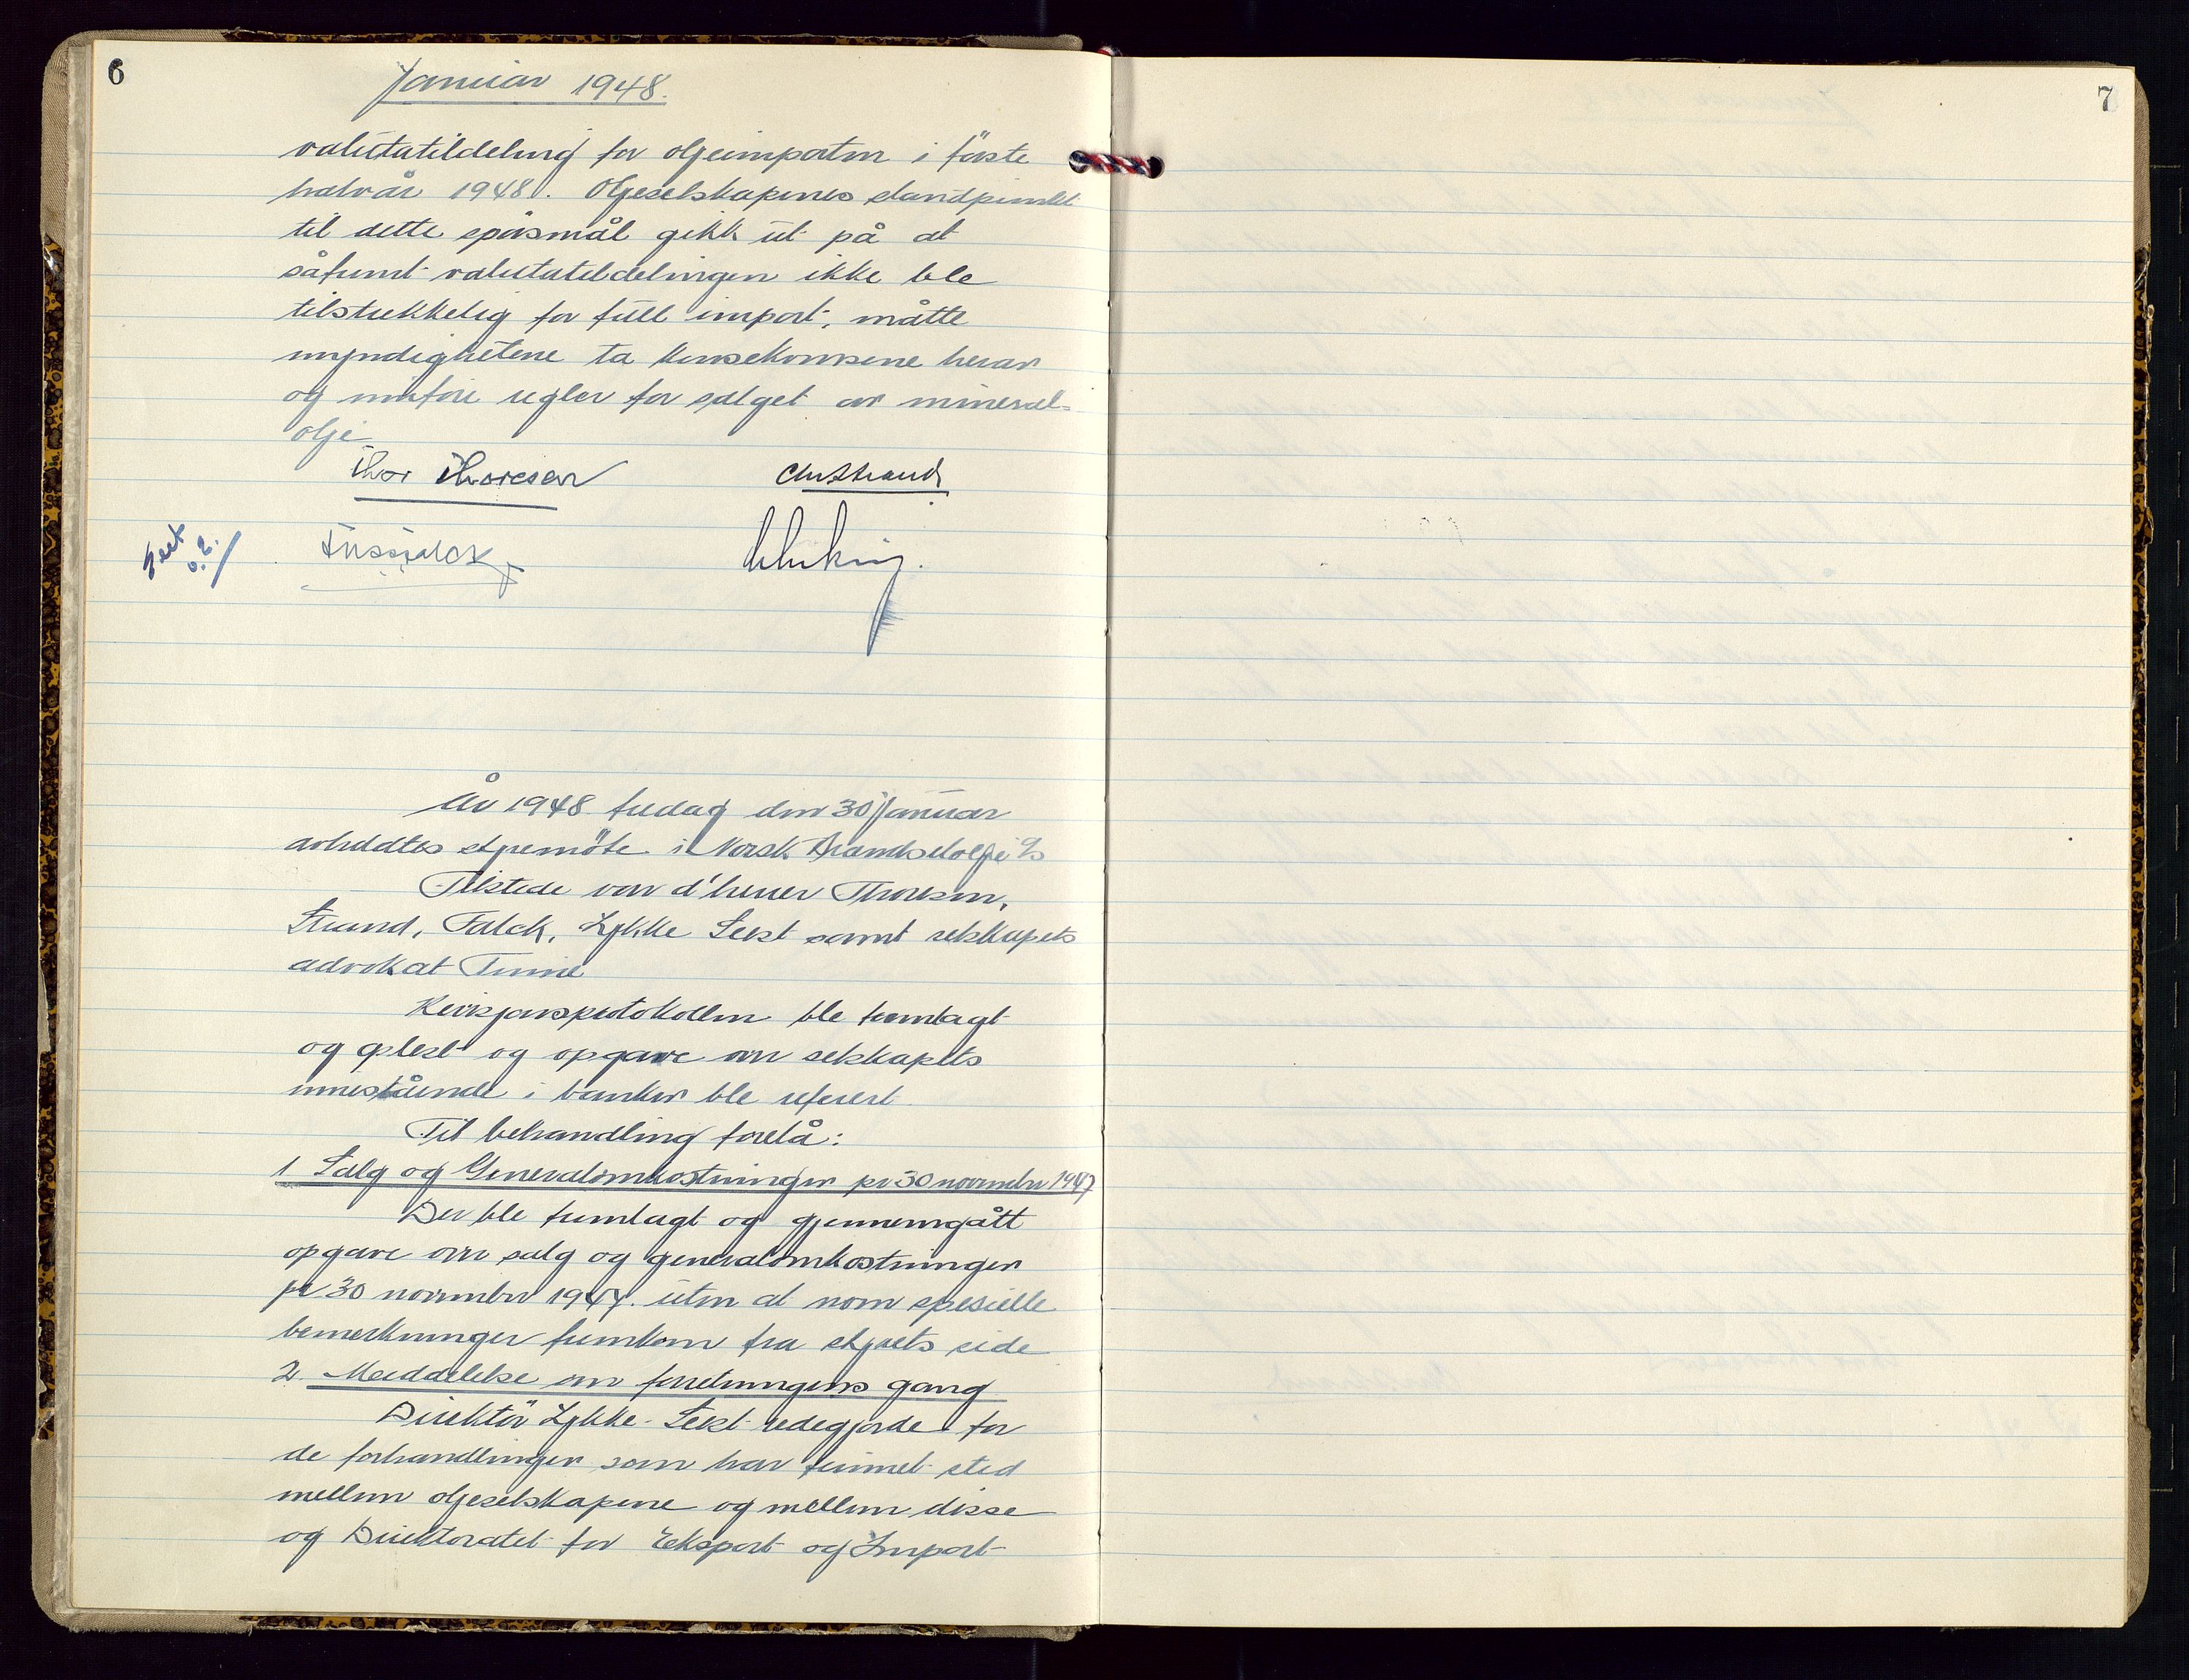 6
Januar 1948.
valutatildeling for oljeimporten i første
halvår 1948. Oljeselskapenes standpunkt
til dette spørsmål gikk ut på at
såfremt valutatildelingen ikke ble
tilstrekkelig for full import, måtte
myndighetene ta konsekvensene herav
og innføre regler for salget av mineral-
olje
Thor Thoresen
Chr Strand
Falck
År 1948 fredag den 30 januar
avholdtes styremøte i Norsk Brændselolje A/S
Tilstede var d'herrer Thoresen,
Strand, Falck, Lykke Seest samt selskapets
advokat
Revisjonsprotokollen ble fremlagt
og oplest og opgave over selskapets
innestående i banker ble referert
Til behandling forelå:
1 Salg og Generalomkostninger pr 30 november 1947
Der ble fremlagt og gjennemgått
opgave over salg og generalomkostninger
pr 30 november 1947. uten at noen spesielle
bemerkninger fremkom fra styrets side
2. Meddelelse om forretningens gang
Direktør Lykke-Seest redegjorde for
de forhandlinger som har funnet sted
mellem oljeselskapene og mellem disse
og Direktoratet for Eksport og Import
7